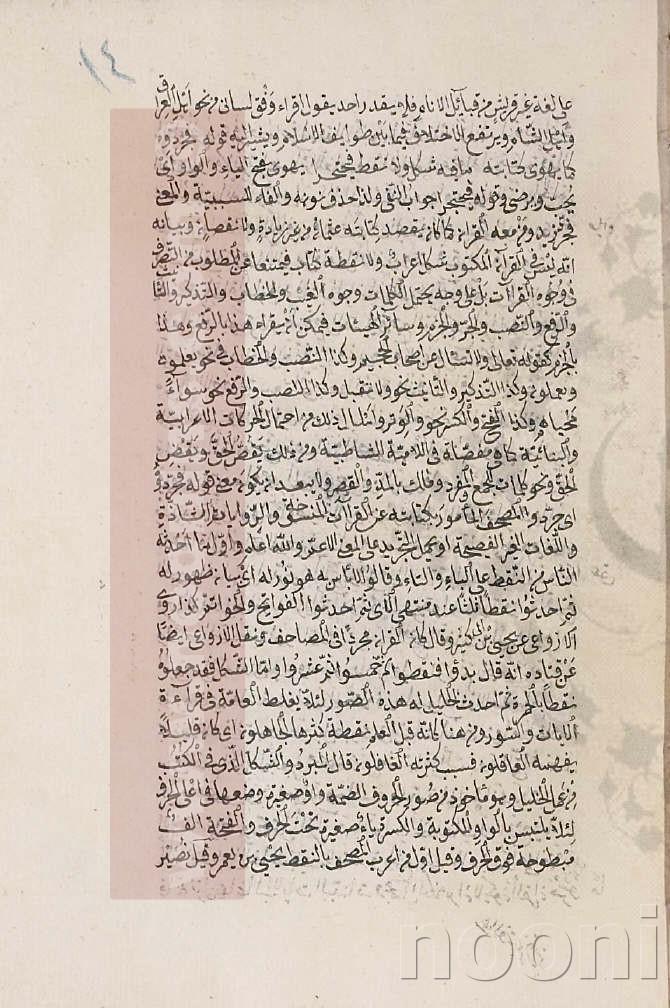 ١٤
على لغة غير قريش من قبائل الاناه فلا يقدر احد يقول اقراء وفق لسانى من نحو اهل العراق
واهل الشام ويرتفع الاختلاف فيما بين طوايف الاسلام ويشير اليه قوله فجردوه
كما يهوى كتابته ما فيه شكل ولا نقط فيحتجرا يهوى بفتح الياء والواو اى
يحب ويرضى وقوله فيحتجرا جواب النفى ولذا حذف نونه والفاء للسببية والمعنى
فجرد زيد ومن معه القرآن كما كان يقصد كتابته عثمان من غير زيادة ولا نقصان وبيانه
انه ليس فى القرآن المكتوب شكل اعراب ولا نقطة كتاب فيمتنعا عن المطلوب من التصرف
فى وجوه القرآات بل على وجه يحتمل الكلمات وجوه الغيب والخطاب والتذكير والتأنيث
والرفع والنصب والجر والجزم وسائر الهيئات فيمكن ان يقراء هذا بالرفع وهذا
بالجزم كقوله تعالى ولا تسئل عن اصحاب الجحيم وكذا النصب والخطاب فى نحو يعلمون
وتعلمون وكذا التذكير والتأنيث نحو ولا تقبل وكذا النصب والرفع نحو سواء
محياهم وكذا الفتح والكسر نحو والوتر وامثال ذلك من احتمال الحركات الاعرابية
والبنائية كما فى مفصلة فى اللامية الشاطبية ومن ذلك يقص الحق ويقض
الحق ونحو كلمات الجمع والمفرد ومالك بالمد والقصر ولا يبعد ان يكون معنى قوله فجردوه
اى جردوا المصحف المأمور بكتابته عن القرآات المنسوخة والروايات الشاذة
واللغات الغير الفصيحة او يحمل التجريد على المعنى الاعم والله اعلم واول ما احدثه
الناس من النقط على الياء والتاء وقالوا لا بأس به هو نور له اى سبب ظهور له
ثم احدثوا نقطا ثلثا عند منتهى الآى ثم احدثوا الفواتح والخواتم كذا روى
الاوزاعى عن يحيى بن ابى كثير وقال كان القرآن مجردا فى المصاحف ونقل الاوزاعى ايضا
عن قتاده انه قال بدؤا فنقطوا ثم خمسوا ثم عشروا واما الشكل فقد جعلوه
نقطا بالحمرة ثم احدث الخليل له هذه الصور لئلا يغلط العامة فى قراءة
الايات والسور ومن هنا كانه قيل العلم نقطة كثرها الجاهلون اى كان قليلا
يفهمه العاقلون فسبب كثرته الغافلون قال المبرد والشكل الذى فى الكتب
من عمل الخليل وهو مأخوذ من صور الحروف الضمة واو صغيرة وضعها فى اعلى الحرف
لئلا يلتبس بالواو المكتوبة والكسرة ياء صغيرة تحت الحرف والفتحة الف
مبطوحة فوق الحرف وقيل اول من اعرب المصحف بالنقط يحيى بن يعمر وقيل نصير
nooni